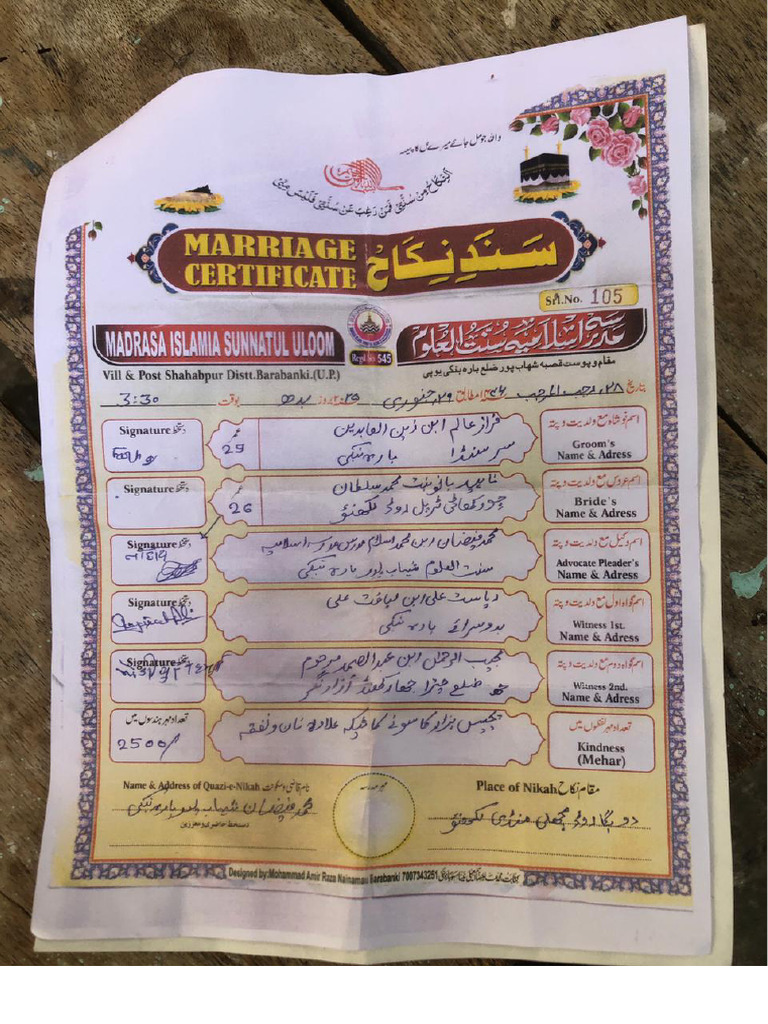 واللہ جو مل جائے میرے گل کا پسینہ
اَلنِّکَاحُ مِنْ سُنَّتِیْ فَمَنْ رَغِبَ عَنْ سُنَّتِیْ فَلَیْسَ مِنِّیْ
MARRIAGE CERTIFICATE سَنَدِ نِکَاح
Srl.No. 105
MADRASA ISLAMIA SUNNATUL ULOOM مدرسہ اسلامیہ سنت العلوم
Regd No 545
Vill & Post Shahabpur Distt.Barabanki.(U.P.) مقام و پوسٹ قصبہ شہاب پور ضلع بارہ بنکی یوپی
بتاریخ ۲۸ رجب المرجب مطابق ۲۹ جنوری ۲۰۲۵ بروز بدھ بوقت 3:30
اسم نوشاہ مع ولدیت و پتہ
Groom's
Name & Adress
فراز عالم ابن زین العابدین
بارہ بنکی
عمر 25
Signature دستخط
اسم عروس مع ولدیت و پتہ
Bride's
Name & Adress
بانو بنت محمد سلطان
روڈ لکھنؤ
عمر 26
Signature دستخط
اسم وکیل مع ولدیت و پتہ
Advocate Pleader's
Name & Adress
محمد فیضان ابن محمد اسلام مدرس مدرسہ اسلامیہ
سنت العلوم شہاب پور بارہ بنکی
Signature دستخط
اسم گواہ اول مع ولدیت و پتہ
Witness 1st.
Name & Adress
ریاست علی ابن لیاقت علی
بارہ بنکی
Signature دستخط
اسم گواہ دوم مع ولدیت و پتہ
Witness 2nd.
Name & Adress
مجیب الرحمٰن ابن عبد الصمد مرحوم
ضلع چترا جھارکھنڈ آزاد نگر
Signature دستخط
تعداد مہر لفظوں میں
Kindness
(Mehar)
پچیس ہزار کا سونے کا علاوہ نان و نفقہ
تعداد مہر ہندسوں میں
2500/
Name & Address of Quazi-e-Nikah نام قاضی و سکونت
محمد فیضان شہاب پور بارہ بنکی
دستخط حاضرین و معززین
مہر مدرسہ
Place of Nikah مقام نکاح
دوبگا روڈ مچھلی منڈی لکھنؤ
Designed by:Mohammad Amir Raza Nainamau Barabanki 7007343251